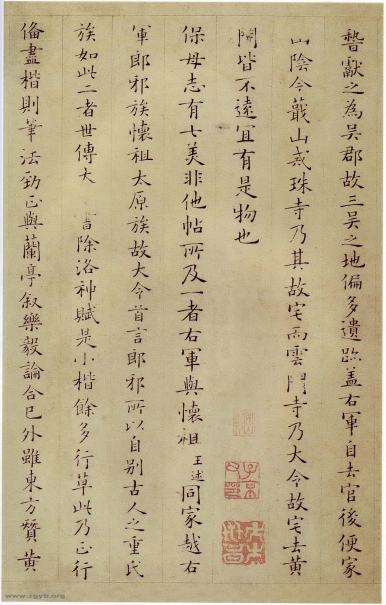 獻之為吳郡故三吳之地偏多遺跡蓋右軍自去官後便家
山陰今蕺山戒珠寺乃其故宅而雲門寺乃大令故宅去黃
皆不遠宜有是物也
保母志有七美非他帖所及一者右軍與懷祖王述同家越右
軍郎邪族懷祖太原族故大令首言郎邪所以自別古人之重氏
族如此二者世傳大 除洛神賦是小楷餘多行草此乃正行
俻盡楷則筆法勁正與蘭亭叙樂毅論合已外雖東方贊黃
子京父印
www.zgyb.org